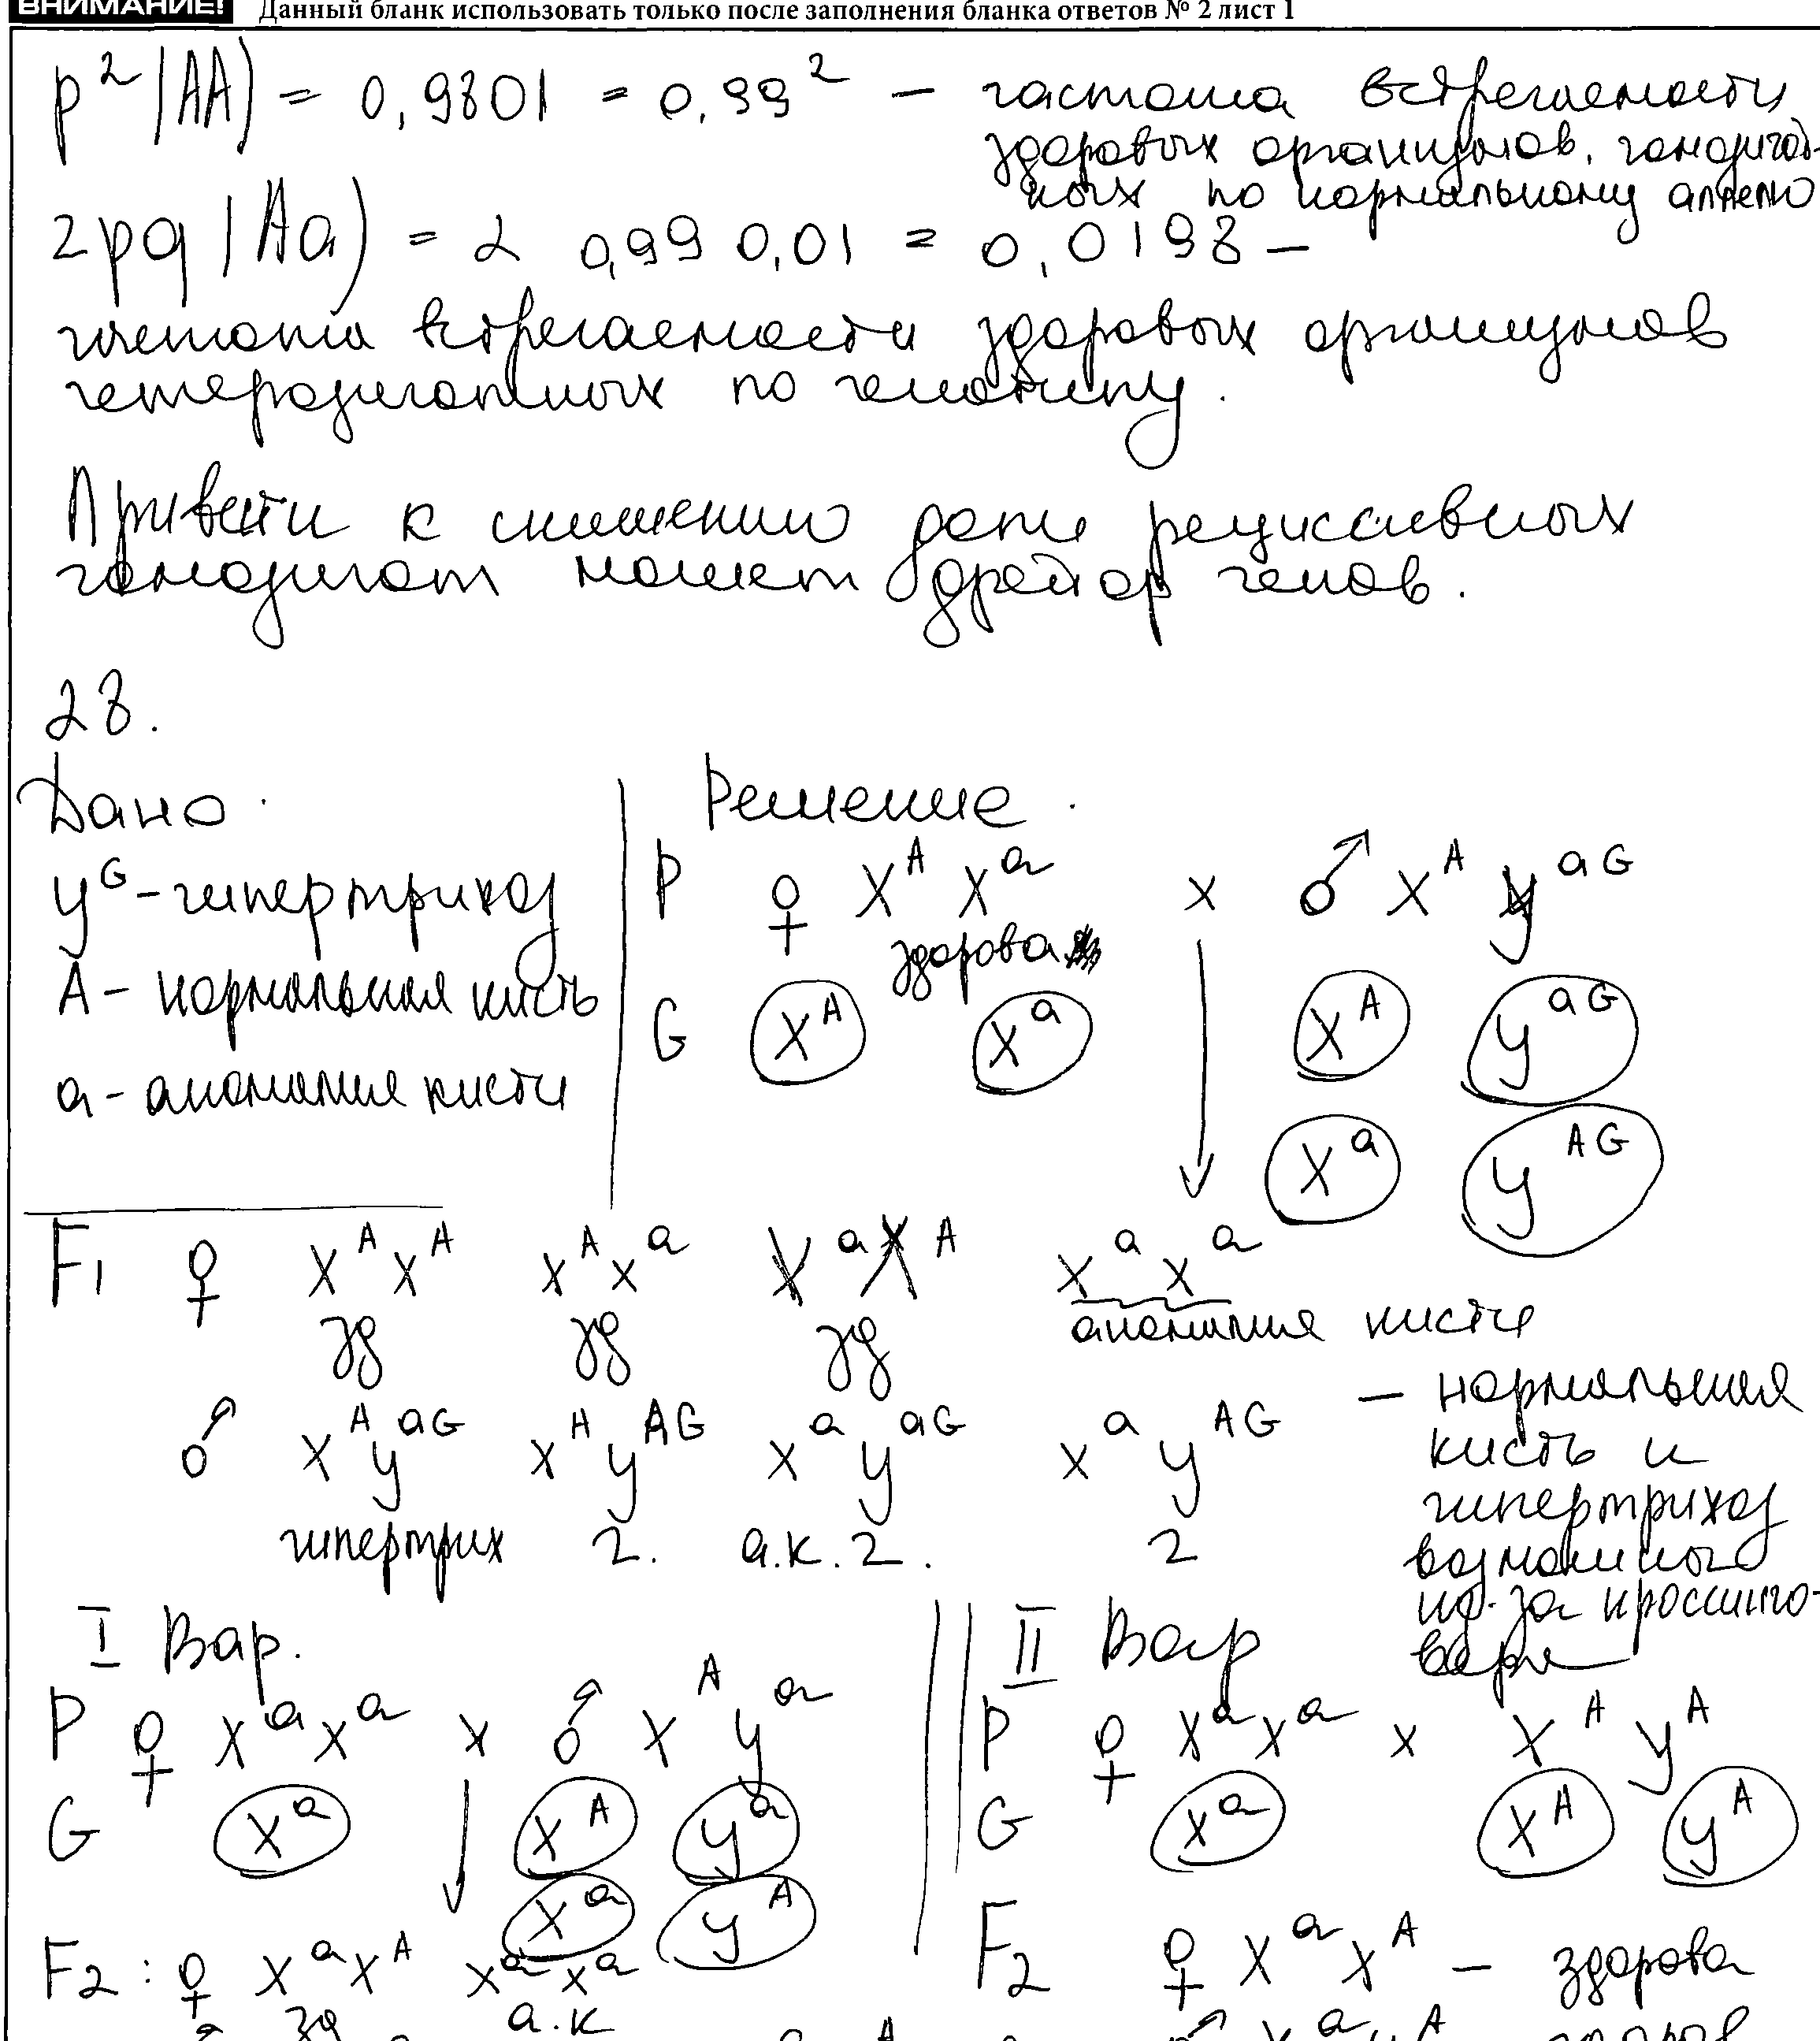 ВНИМАНИЕ! Данный бланк использовать только после заполнения бланка ответов № 2 лист 1
p²(AA) = 0,9801 = 0,99² – частота встречаемости
здоровых организмов, гомозигот-
ных по нормальному аллелю
2pq (Aa) = 2 0,99 0,01 = 0,0198 –
частота встречаемости здоровых организмов
гетерозиготных по генотипу.
Привести к снижению доли рециссивных
гомозигот может дрейф генов.
28.
Дано.
y^G – гипертрихоз
A – нормальная кисть
a – аномалия кисти
Решение.
P ♀ X^A X^a x ♂ X^A y^aG
здорова
G X^A X^a X^A y^aG
X^a y^AG
F1 ♀ X^A X^A X^A X^a X^a X^A X^a X^a
зд зд зд аномалия кисти
♂ X^A y^aG X^A y^AG X^a y^aG X^a y^AG
гипертрих г. а.к. г. г
– нормальная
кисть и
гипертрихоз
возможны
из-за кроссинго-
вера
I Вар.
P ♀ X^a X^a x ♂ X^A y^a
G X^a X^A y^a
X^a y^A
F2 : ♀ X^a X^A X^a X^a
зд а.к
II Вар
P ♀ X^a X^a x X^A y^A
G X^a X^A y^A
F2 ♀ X^a X^A – здорова